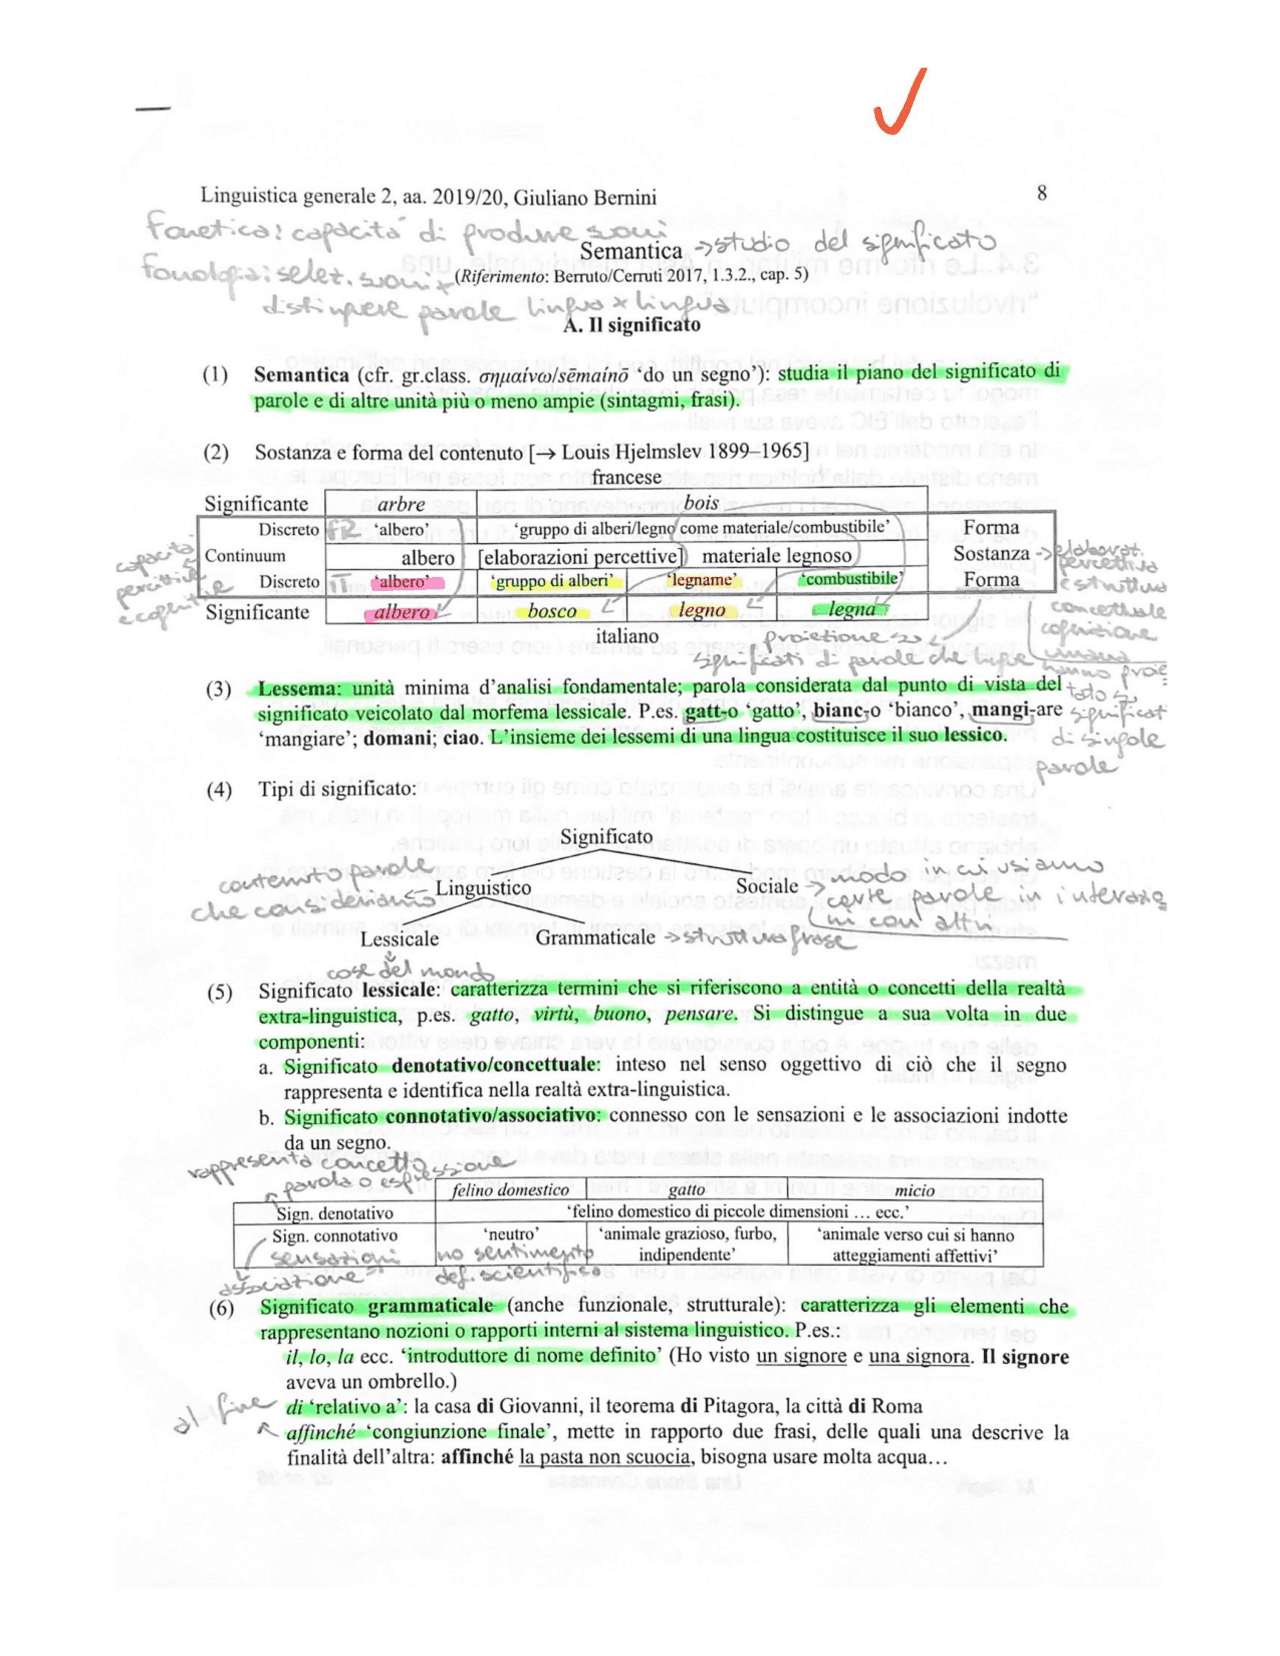 Linguistica generale 2, aa. 2019/20, Giuliano Bernini 8
Fonetica: capacità di produrre suoni
Semantica → studio del significato
Fonologia: selez. suoni x
(Riferimento: Berruto/Cerruti 2017, 1.3.2., cap. 5)
distinguere parole lingua x lingua
A. Il significato
(1) Semantica (cfr. gr.class. σημαίνω/sēmainō ‘do un segno’): studia il piano del significato di
parole e di altre unità più o meno ampie (sintagmi, frasi).
(2) Sostanza e forma del contenuto [→ Louis Hjelmslev 1899–1965]
francese
Significante arbre bois
Discreto FR ‘albero’ ‘gruppo di alberi/legno come materiale/combustibile’ Forma
Continuum albero [elaborazioni percettive] materiale legnoso Sostanza → elaboraz.
Discreto IT ‘albero’ ‘gruppo di alberi’ ‘legname’ ‘combustibile’ Forma
Significante albero bosco legno legna
capacità
percettive
e cognitive
percettiva
e struttura
concettuale
cognizione
umana
italiano
proiezione su
significati di parole che lingue
hanno proie
tato su
significati
di singole
parole
(3) Lessema: unità minima d’analisi fondamentale; parola considerata dal punto di vista del
significato veicolato dal morfema lessicale. P.es. gatt-o ‘gatto’, bianc-o ‘bianco’, mangi-are
‘mangiare’; domani; ciao. L’insieme dei lessemi di una lingua costituisce il suo lessico.
(4) Tipi di significato:
Significato
contenuto parole
che consideriamo ← Linguistico
Sociale → modo in cui usiamo
certe parole in interazio
ni con altri
Lessicale Grammaticale → struttura frase
cose del mondo
(5) Significato lessicale: caratterizza termini che si riferiscono a entità o concetti della realtà
extra-linguistica, p.es. gatto, virtù, buono, pensare. Si distingue a sua volta in due
componenti:
a. Significato denotativo/concettuale: inteso nel senso oggettivo di ciò che il segno
rappresenta e identifica nella realtà extra-linguistica.
b. Significato connotativo/associativo: connesso con le sensazioni e le associazioni indotte
da un segno.
rappresenta concetto
parola o espressione
felino domestico gatto micio
Sign. denotativo ‘felino domestico di piccole dimensioni … ecc.’
Sign. connotativo ‘neutro’ ‘animale grazioso, furbo, ‘animale verso cui si hanno
indipendente’ atteggiamenti affettivi’
sensazioni no sentimento
associazione def. scientifica
(6) Significato grammaticale (anche funzionale, strutturale): caratterizza gli elementi che
rappresentano nozioni o rapporti interni al sistema linguistico. P.es.:
il, lo, la ecc. ‘introduttore di nome definito’ (Ho visto un signore e una signora. Il signore
aveva un ombrello.)
di ‘relativo a’: la casa di Giovanni, il teorema di Pitagora, la città di Roma
al fine
affinché ‘congiunzione finale’, mette in rapporto due frasi, delle quali una descrive la
finalità dell’altra: affinché la pasta non scuocia, bisogna usare molta acqua…